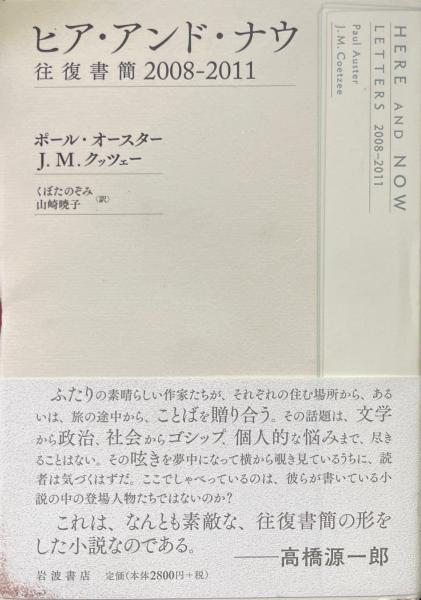 ヒア・アンド・ナウ
往復書簡 2008-2011
ポール・オースター
J.M.クッツェー
くぼたのぞみ
山崎暁子
〈訳〉
HERE AND NOW
LETTERS 2008-2011
Paul Auster
J. M. Coetzee
ふたりの素晴らしい作家たちが、それぞれの住む場所から、ある
いは、旅の途中から、ことばを贈り合う。その話題は、文学
から政治、社会からゴシップ、個人的な悩みまで、尽き
ることはない。その呟きを夢中になって横から覗き見ているうちに、読
者は気づくはずだ。ここでしゃべっているのは、彼らが書いている小
説の中の登場人物たちではないのか?
これは、なんとも素敵な、往復書簡の形を
した小説なのである。
——高橋源一郎
岩波書店 定価(本体2800円+税)